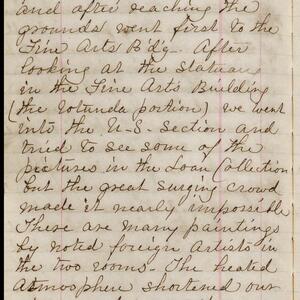 and after reaching the
grounds went first to the
Fine Arts Bdg. After
looking at the statuary
in the Fine Arts Building
(the rotunda portion) we went
into the U-S- Section and
tried to see some of the
pictures in the Loan Collection
but the great surging crowd
made it nearly impossible
There are many paintings
by noted foreign artists in
the two rooms- The heated
atmosphere shortened our